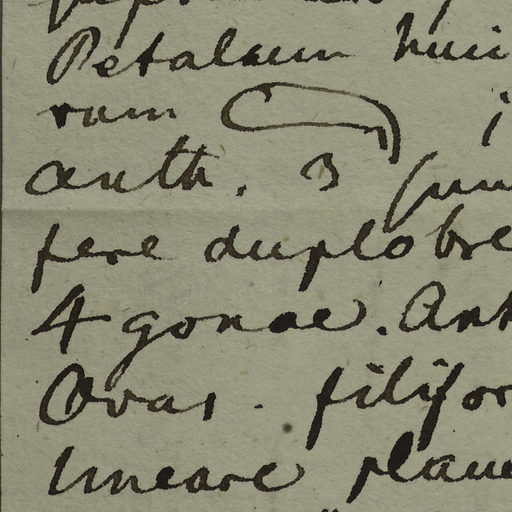 Petalum huic
rum
anth. 3
fere duplo bre
4gonae. Ant
Ovar. filifor
lineare plan